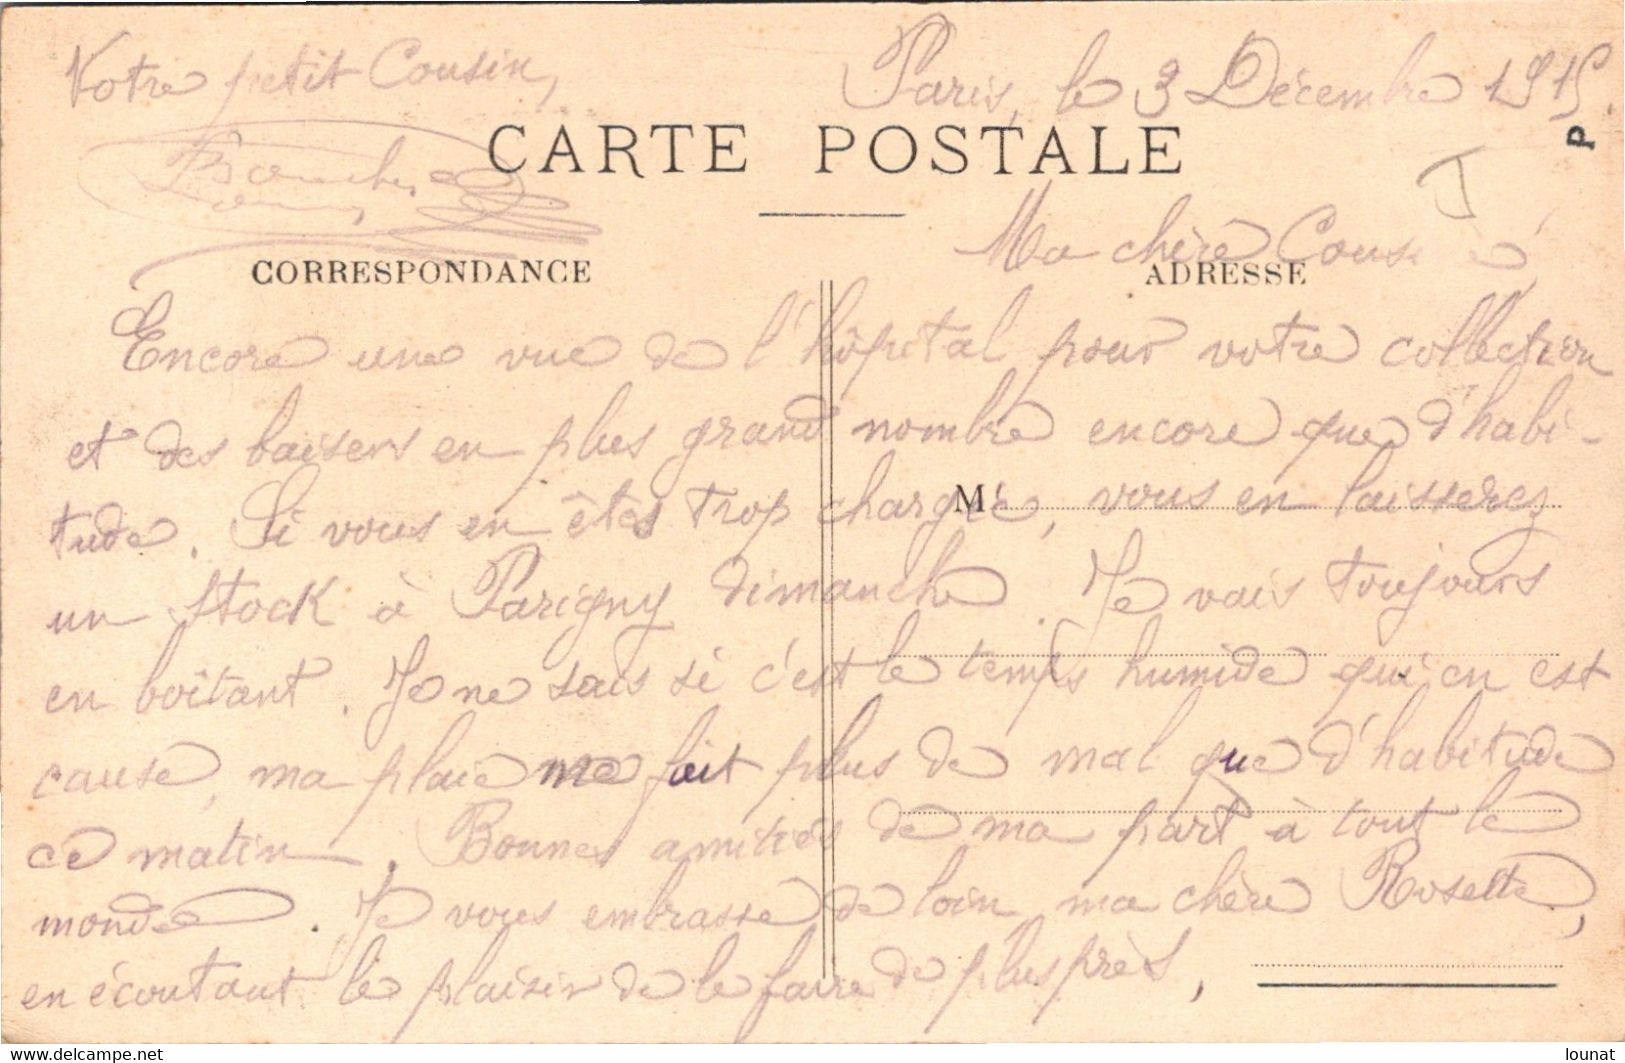 Paris, le 3 Décembre 1915.
CARTE POSTALE
P
Ma chère
CORRESPONDANCE
ADRESSE
M
Encore une vue de l'hôpital pour votre collection
et des baisers en plus grand nombre encore que d'habi-
tude. Si vous en êtes trop chargée, vous en laisserez
un stock à Parigny dimanche. Je vais toujours
en boîtant. Je ne sais si c'est le temps humide qui en est
cause, ma plaie me fait plus de mal que d'habitude
ce matin. Bonnes amitiés de ma part à tout le
monde. Je vous embrasse de loin, ma chère Rosette,
en écoutant le plaisir de le faire de plus près,
Votre petit Cousin,
www.delcampe.net
lounat